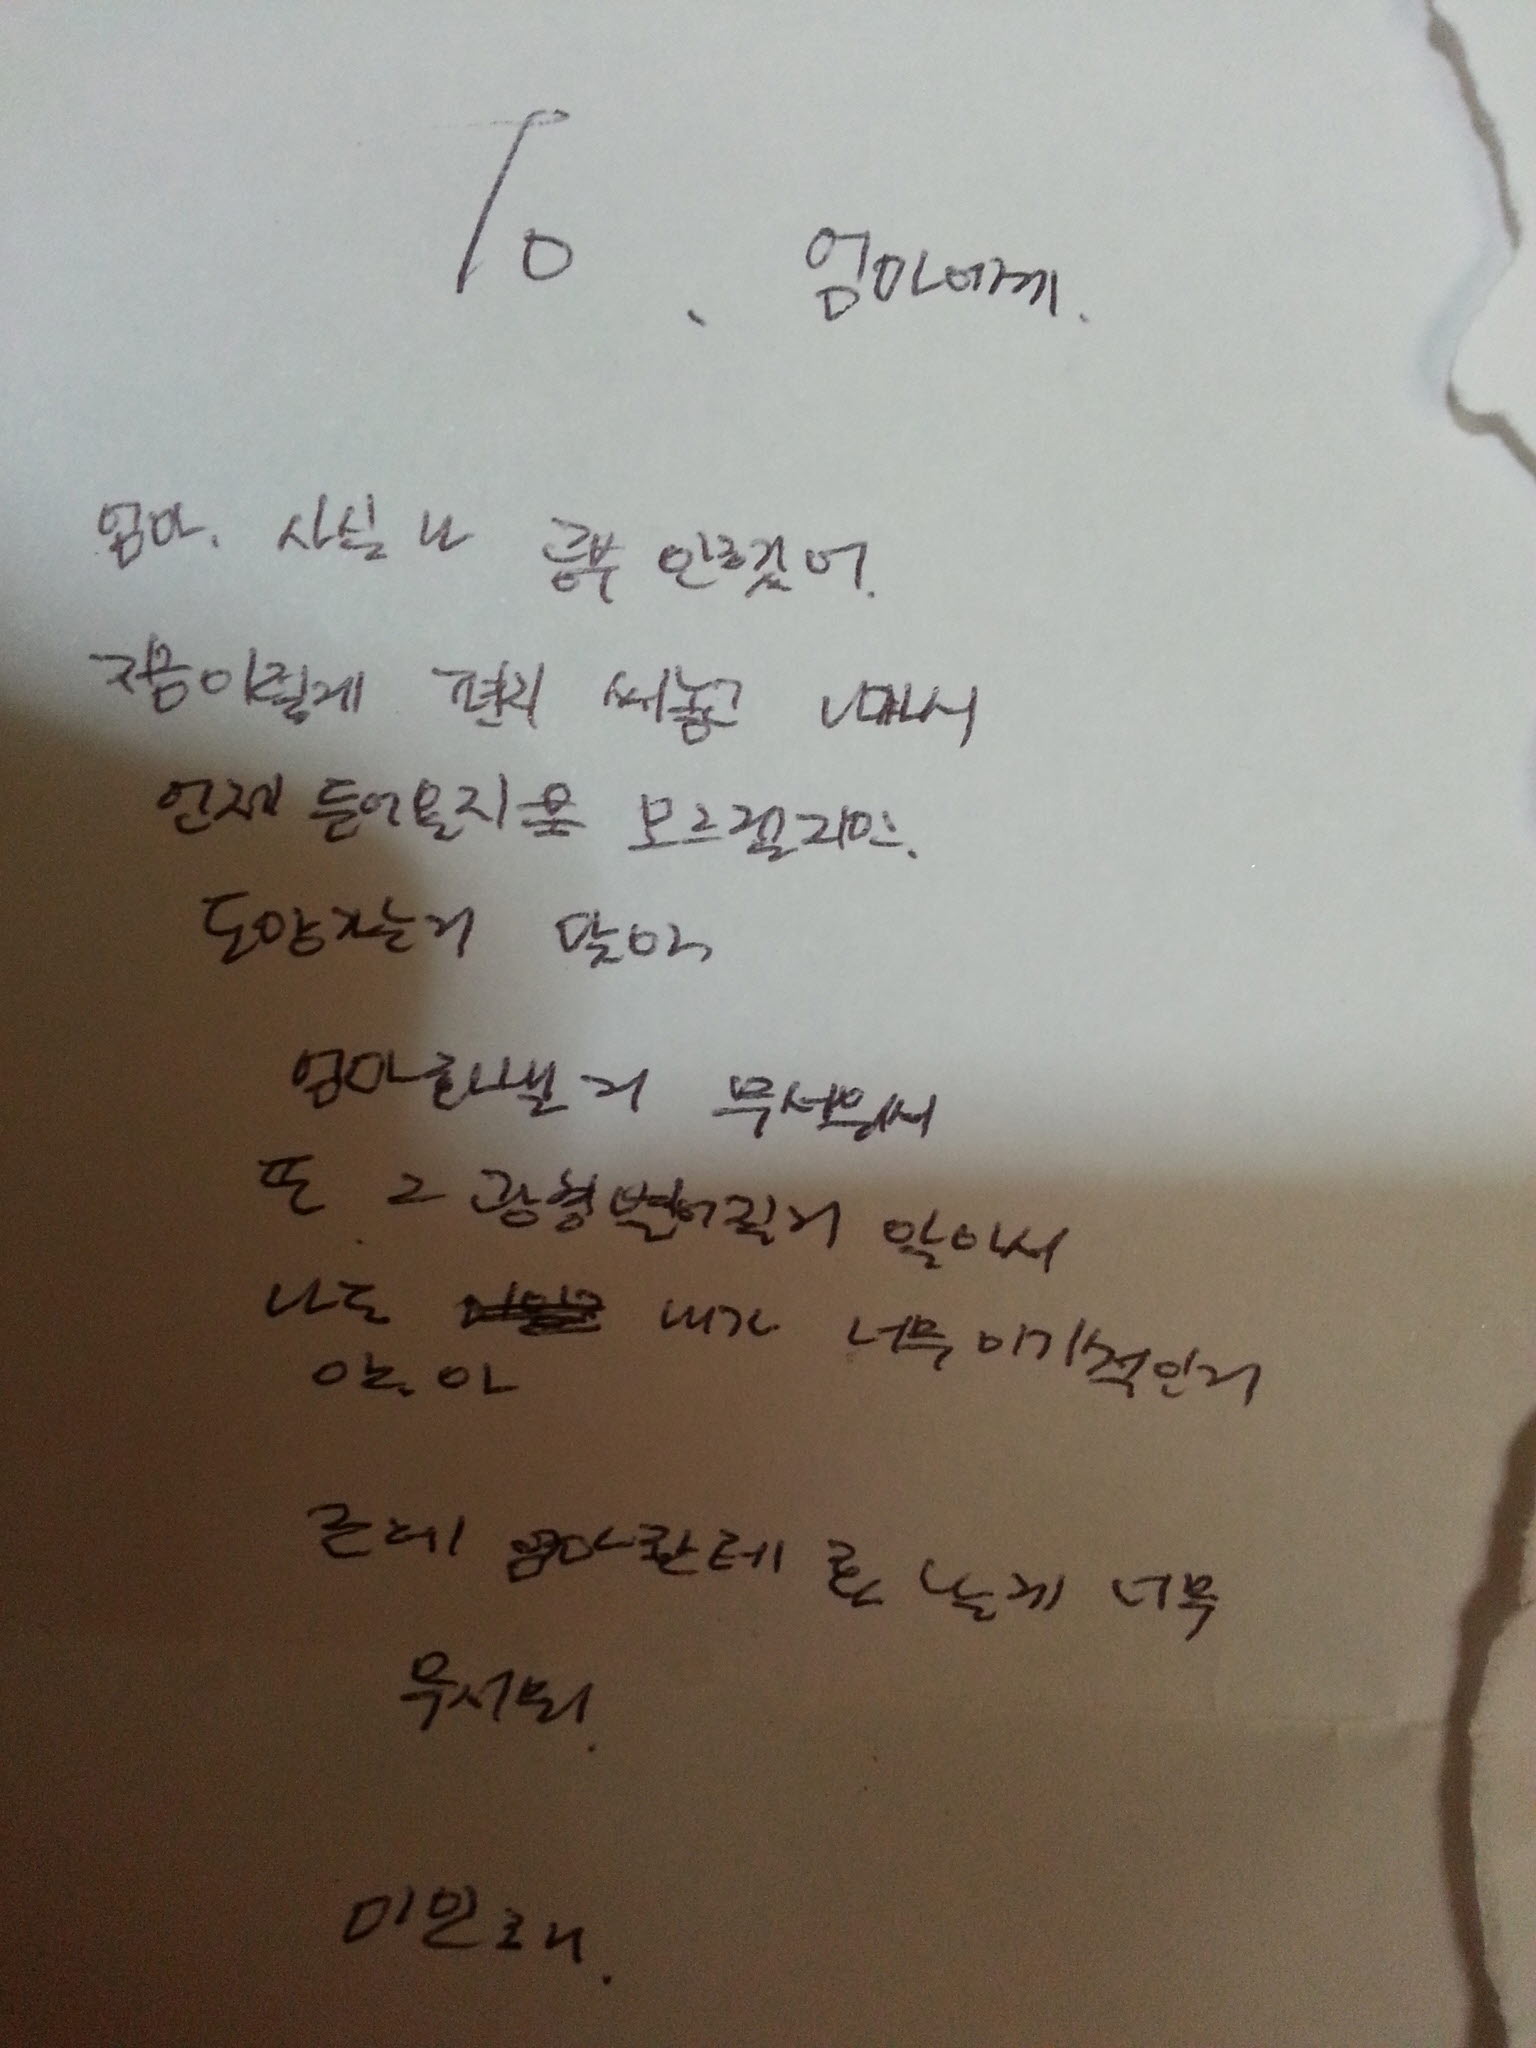 To. 엄마에게.
엄마. 사실 나 공부 안했어.
지금이렇게 편지 써놓고 나가서
언제 들어올지를 모르겠지만.
도망치는거 맞아
엄마화낼거 무서워서
또 그 광경벌어질거 알아서
나도 내가 너무이기적인거
알아
근데 엄마한테 혼나는게 너무
무서워.
미안해.